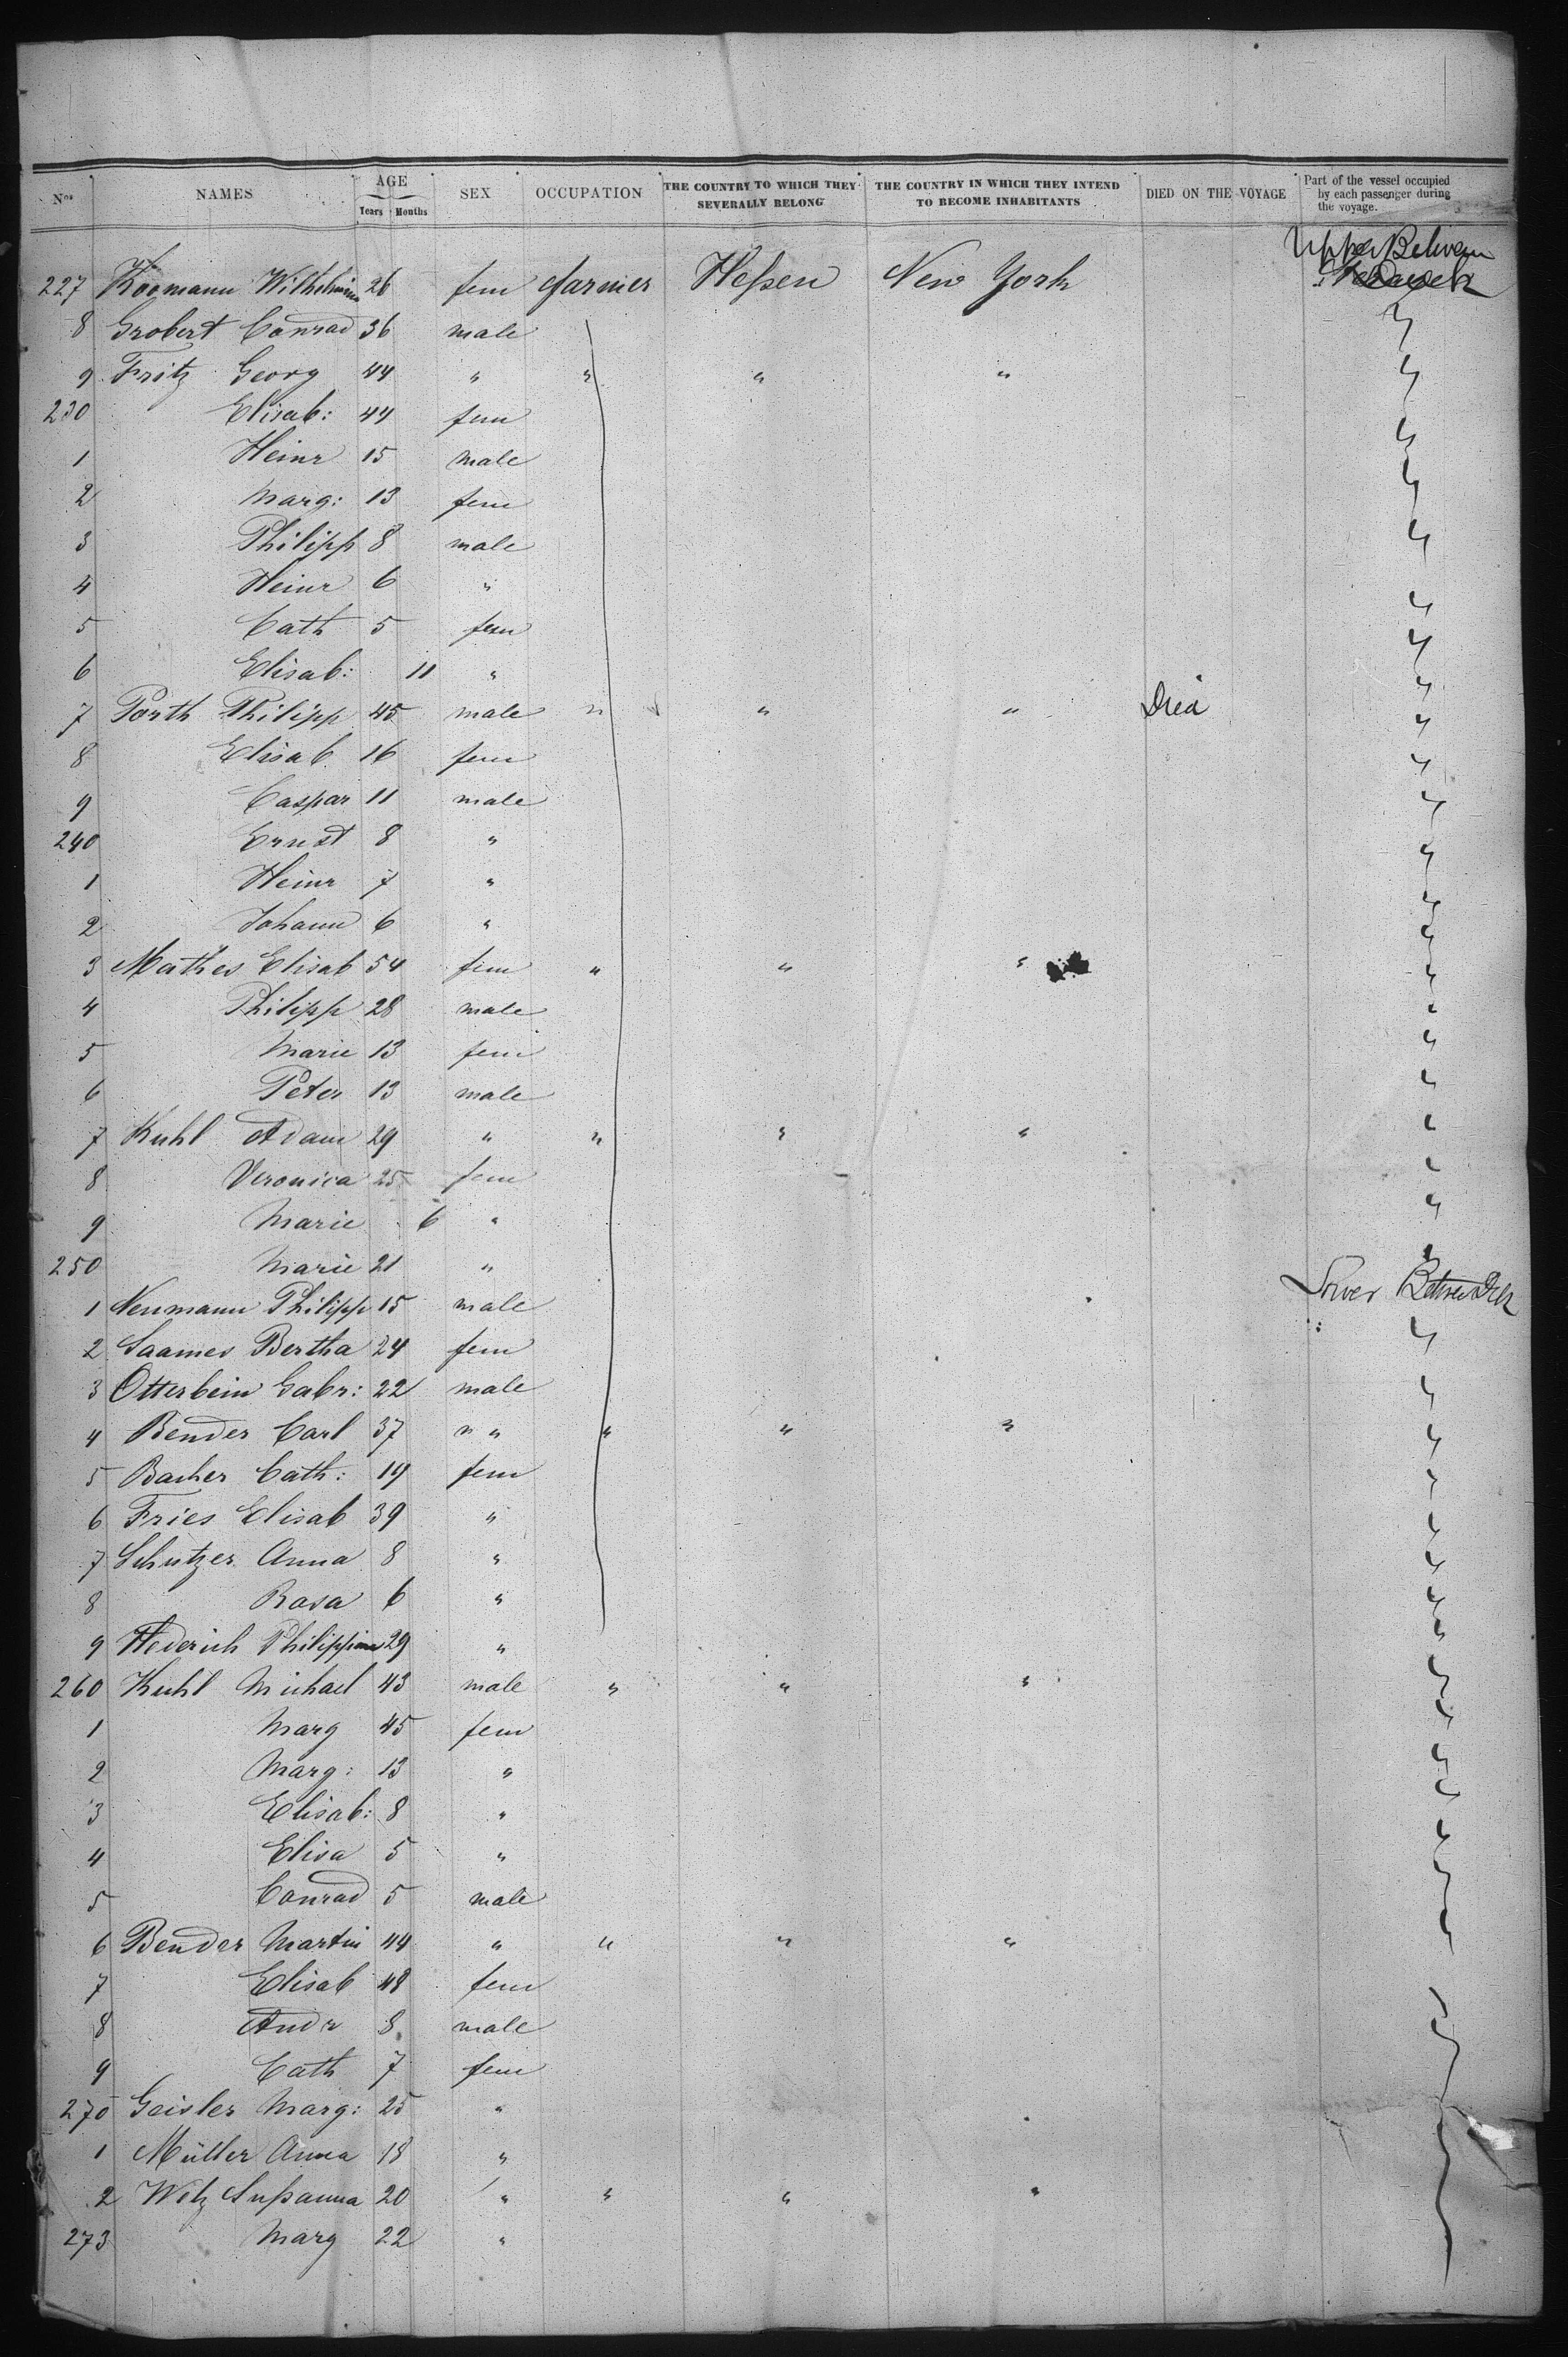 Nos NAMES AGE Years Months SEX OCCUPATION THE COUNTRY TO WHICH THEY SEVERALLY BELONG THE COUNTRY IN WHICH THEY INTEND TO BECOME INHABITANTS DIED ON THE VOYAGE Part of the vessel occupied by each passenger during the voyage.
Upper Between
227 Koomann Wilhelmine 26 fem farmer Heßen New York
8 Grobert Conrad 36 male "
9 Fritz Georg 44 " " " " "
230 Elisab: 44 fem "
1 Heinr 15 male "
2 Marg: 13 fem "
3 Philipp 8 male "
4 Heinr 6 " "
5 Cath 5 fem "
6 Elisab: 11 " "
7 Porth Philipp 45 male " " " Died "
8 Elisab 16 fem "
9 Caspar 11 male "
240 Ernst 8 " "
1 Heinr 7 " "
2 Johann 6 " "
3 Mathes Elisab 54 fem " " " "
4 Philipp 28 male "
5 Marie 13 fem "
6 Peter 13 male "
7 Kuhl Adam 29 " " " " "
8 Veronica 25 fem "
9 Marie 6 " "
250 Marie 21 " "
1 Neumann Philipp 15 male Lower Between Deck
2 Saames Bertha 24 fem "
3 Otterbein Gabr: 22 male "
4 Bender Carl 37 " " " " " "
5 Bacher Cath: 19 fem "
6 Fries Elisab 39 " "
7 Schutzer Anna 8 " "
8 Rosa 6 " "
9 Hederich Philippine 29 " "
260 Kuhl Michael 43 male " " " "
1 Marg 45 fem "
2 Marg: 13 " "
3 Elisab: 8 " "
4 Elisa 5 " "
5 Conrad 5 male "
6 Bender Martin 44 " " " " "
7 Elisab 48 fem
8 Andr 8 male
9 Cath 7 fem
270 Geisler Marg: 25 "
1 Müller Anna 18 "
2 Welz Sußanna 20 " " " "
273 Marg 22 "